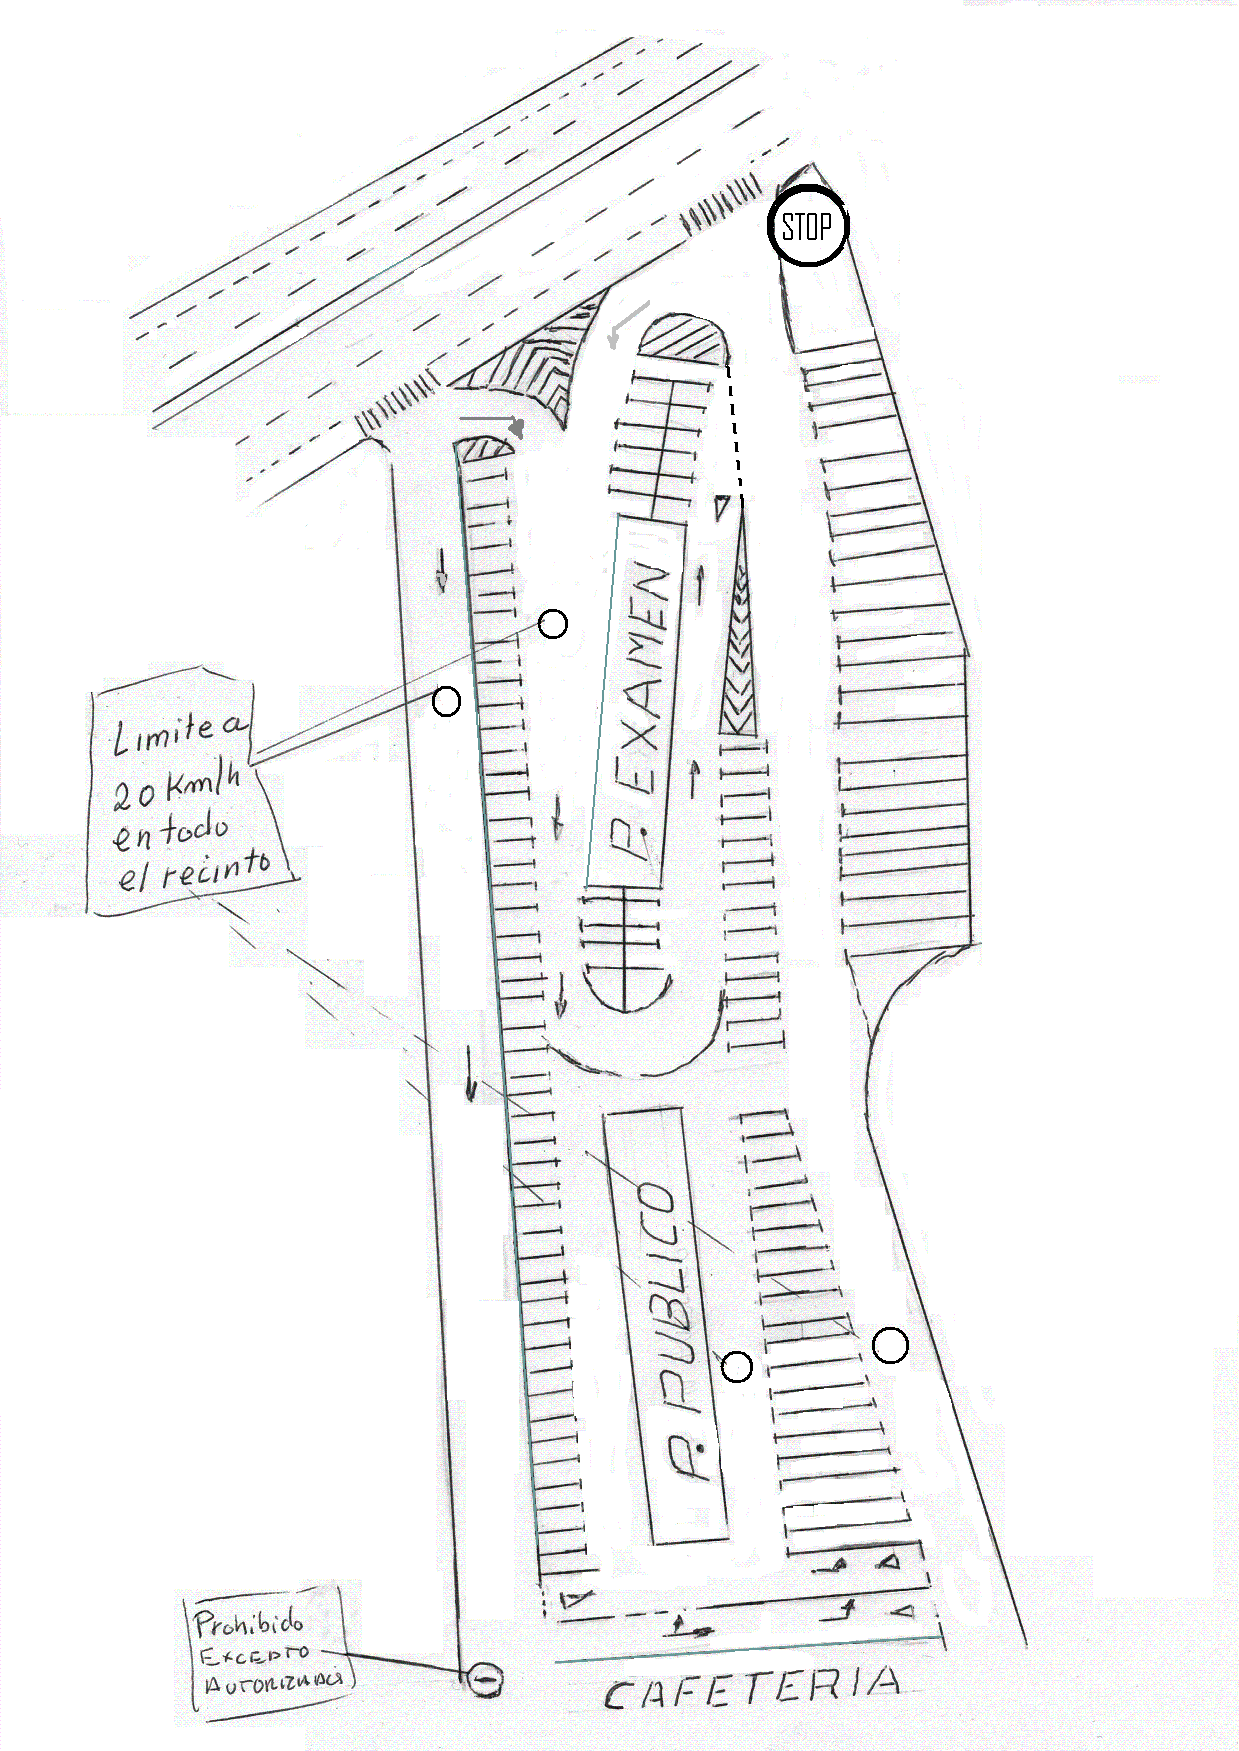 STOP
P. EXAMEN
Limite a
20 Km/h
en todo
el recinto
P. PUBLICO
Prohibido
EXCEPTO
CAFETERIA